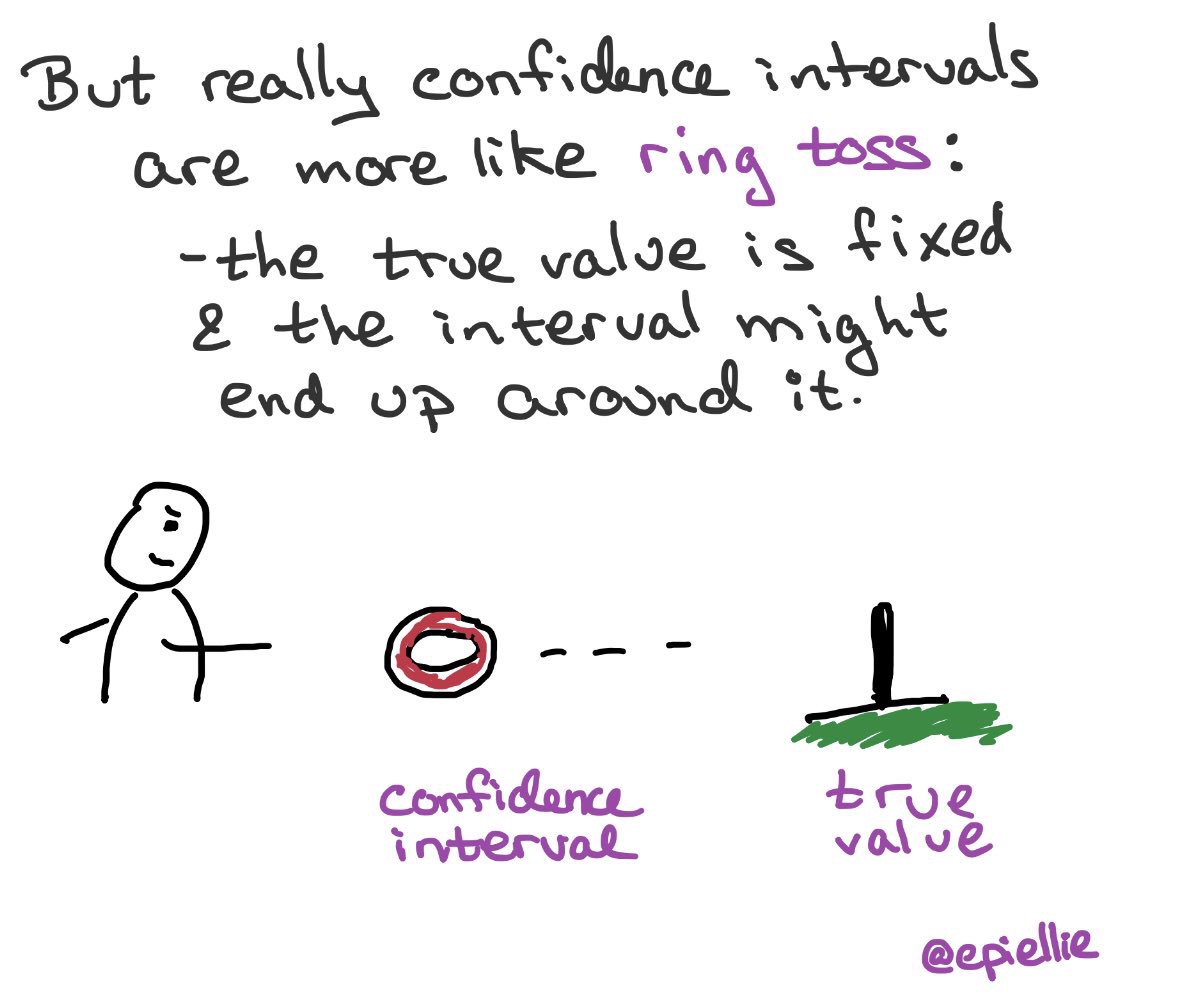 But really confidence intervals
are more like ring toss:
- the true value is fixed
& the interval might
end up around it.
confidence
interval
true
value
@epiellie